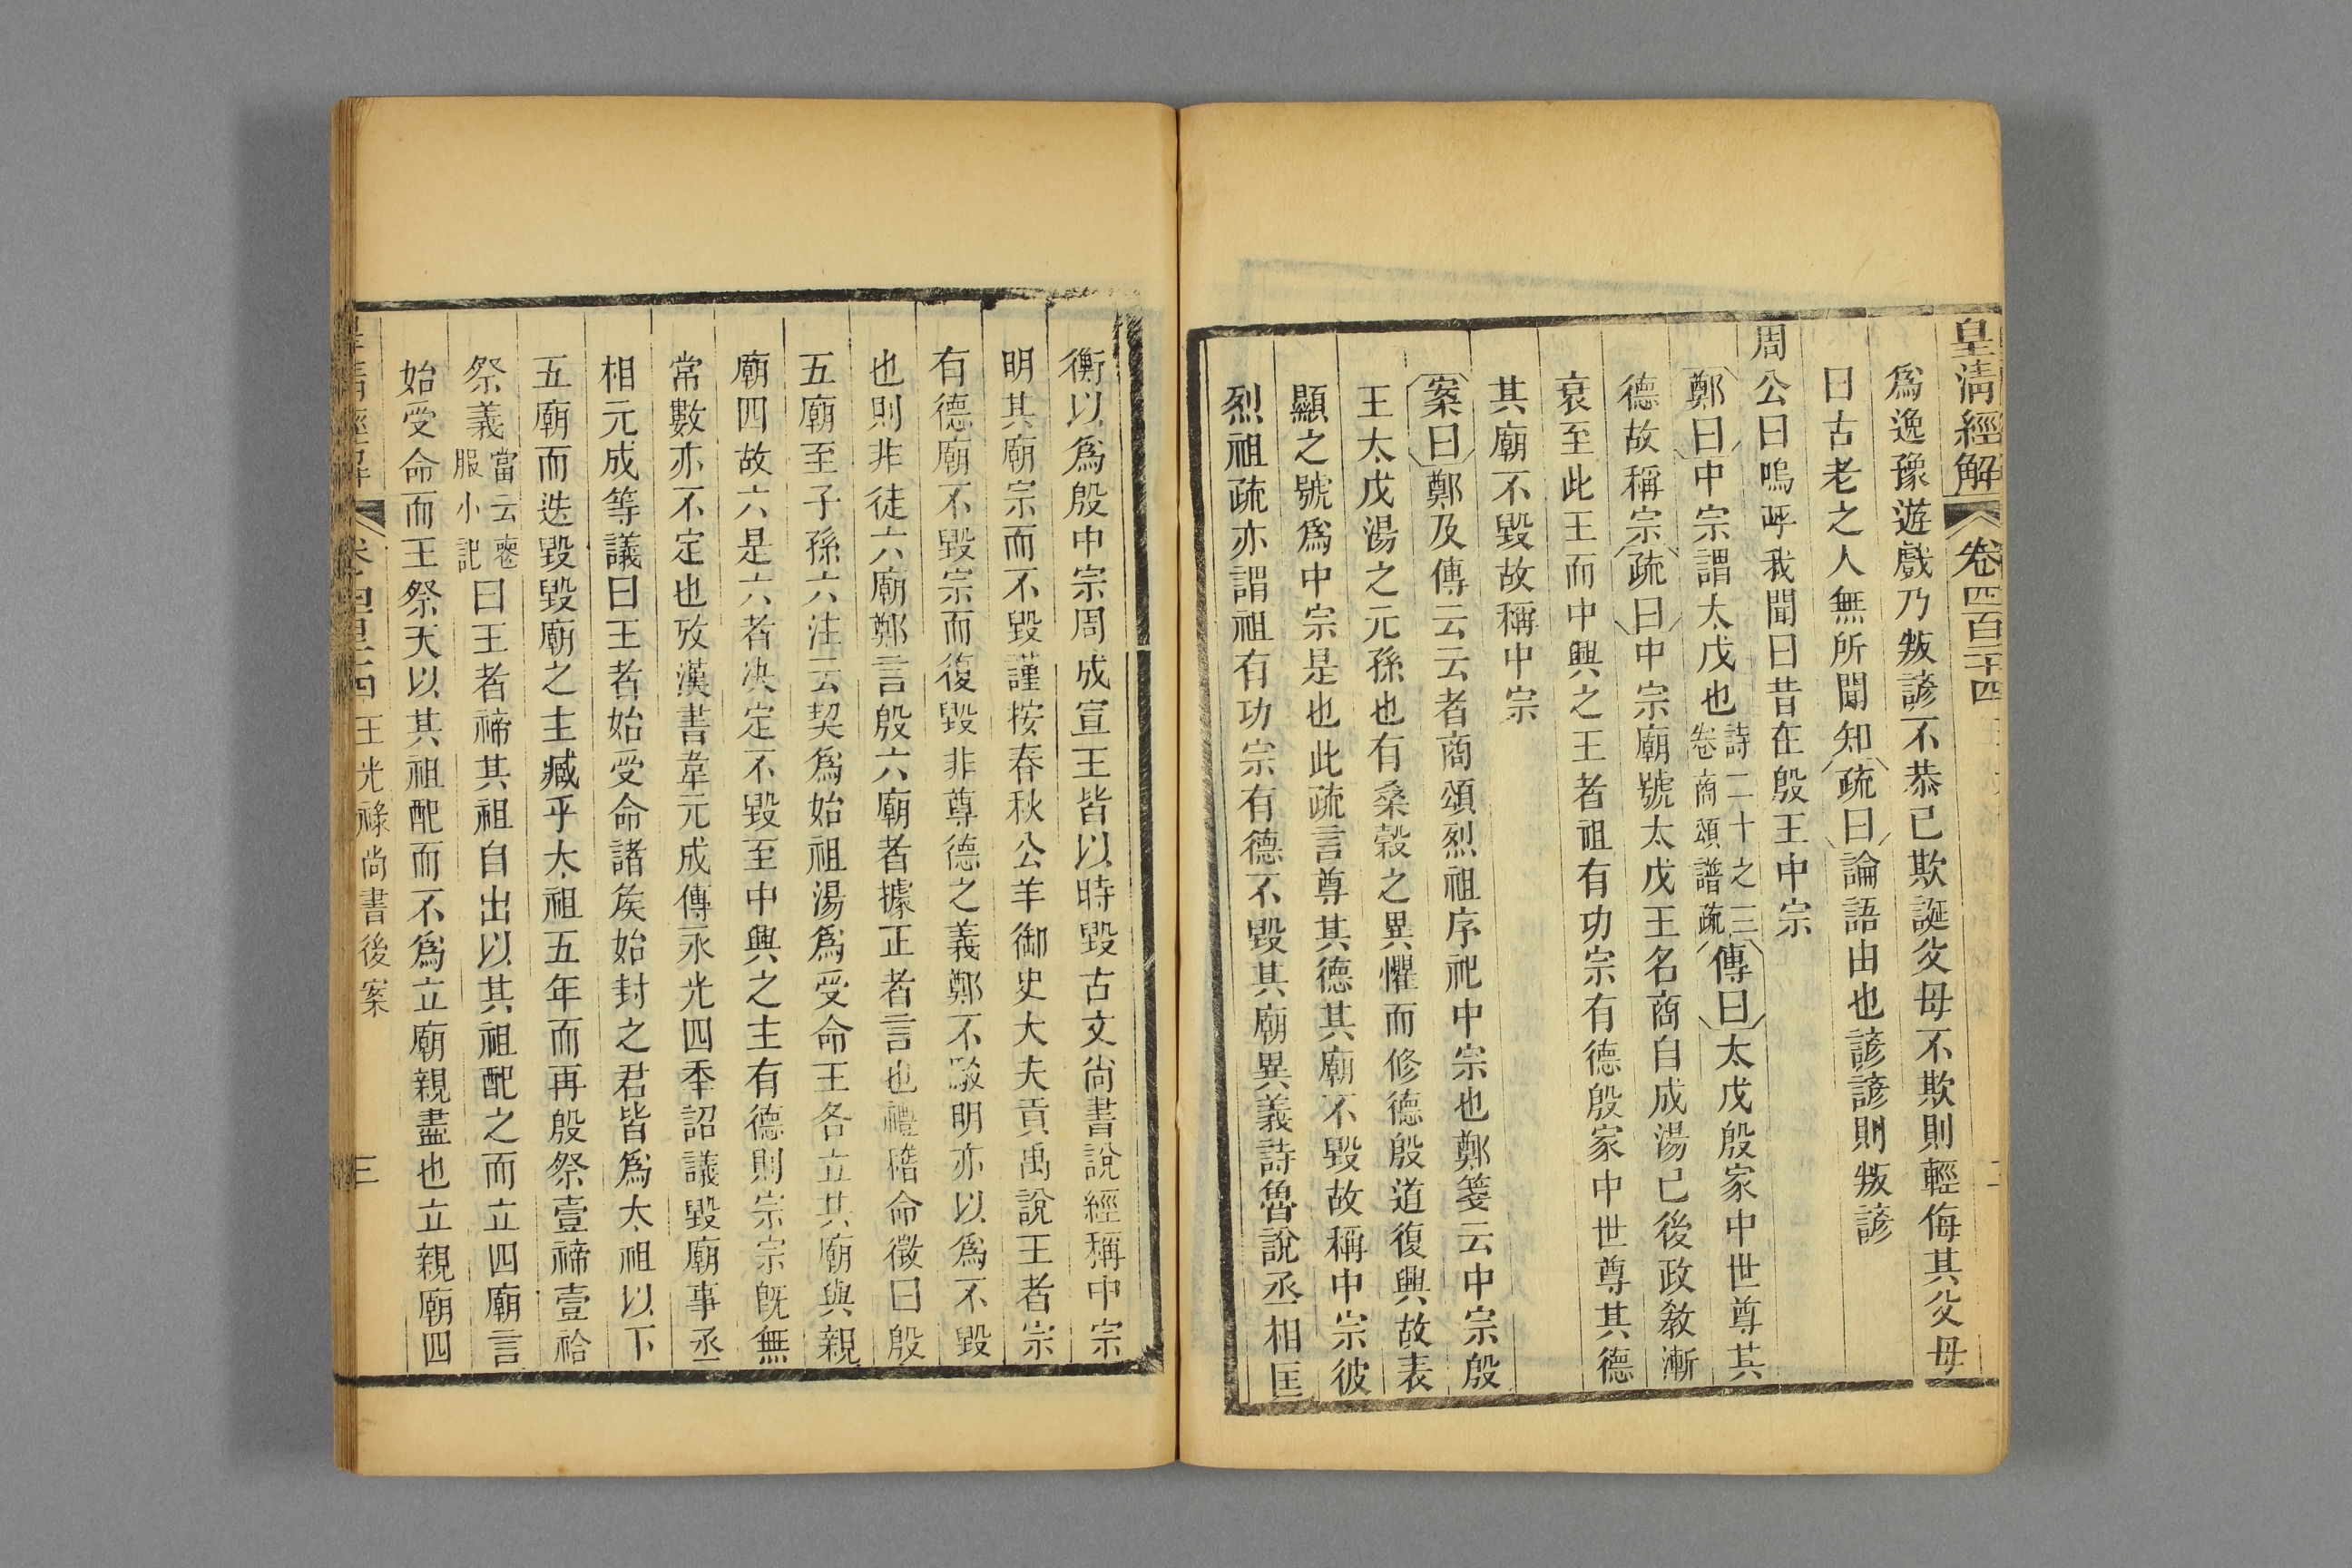 皇淸經解 卷四百二十四
爲逸豫遊戲乃叛諺不恭已欺誕父母不欺則輕侮其父母
曰古老之人無所聞知疏曰論語由也諺諺則叛諺
周公曰嗚呼我聞曰昔在殷王中宗
鄭曰中宗謂太戊也詩二十之三卷商頌譜疏傳曰太戊殷家中世尊其
德故稱宗疏曰中宗廟號太戊王名商自成湯已後政敎漸
衰至此王而中興之王者祖有功宗有德殷家中世尊其德
其廟不毀故稱中宗
案曰鄭及傳云云者商頌烈祖序祀中宗也鄭箋云中宗殷
王太戊湯之元孫也有桑穀之異懼而修德殷道復興故表
顯之號爲中宗是也此疏言尊其德其廟不毀故稱中宗彼
烈祖疏亦謂祖有功宗有德不毀其廟異義詩魯說丞相匡
衡以爲殷中宗周成宣王皆以時毀古文尙書說經稱中宗
明其廟宗而不毀謹按春秋公羊御史大夫貢禹說王者宗
有德廟不毀宗而復毀非尊德之義鄭不駁明亦以爲不毀
也則非徒六廟鄭言殷六廟者據正者言也禮稽命徵曰殷
五廟至子孫六注云契爲始祖湯爲受命王各立其廟與親
廟四故六是六者决定不毀至中興之主有德則宗宗旣無
常數亦不定也攷漢書韋元成傳永光四秊詔議毀廟事丞
相元成等議曰王者始受命諸矦始封之君皆爲太祖以下
五廟而迭毀毀廟之主臧乎太祖五年而再殷祭壹禘壹祫
祭義當云喪服小記曰王者禘其祖自出以其祖配之而立四廟言
始受命而王祭天以其祖配而不爲立廟親盡也立親廟四
皇淸經解 卷四百二十四 王光祿尙書後案 三